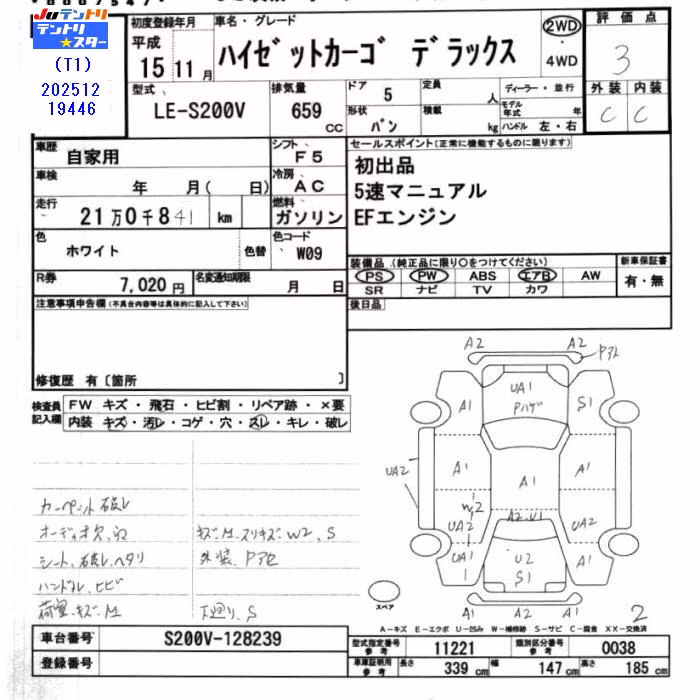 Juテントリ
テントリ★スター
(T1)
202512
19446
初度登録年月
平成
15年11月
車名・グレード
ハイゼットカーゴ デラックス
2WD
・
4WD
評価点
3
外装 内装
C C
型式
LE-S200V
排気量
659 CC
ドア 5
定員 人
形状 バン
積載 kg
ディーラー・並行
モデル年式 年
ハンドル 左・右
車歴 自家用
シフト F5
車検 年 月( 日)
冷房 AC
走行 21万0千841 km
燃料 ガソリン
色 ホワイト
色替
色コード W09
R券 7,020円
名変通知期限 月 日
セールスポイント(正常に機能するものに限ります)
初出品
5速マニュアル
EFエンジン
装備品(純正品に限り○をつけてください)
PS PW ABS エアB AW
SR ナビ TV カワ
新車保証書
有・無
後日品
注意事項申告欄(不具合内容等は具体的に記入して下さい)
修復歴 有〔箇所 〕
検査員記入欄
FW キズ・飛石・ヒビ割・リペア跡・×要
内装 キズ・汚レ・コゲ・穴・スレ・キレ・破レ
カーペット破レ
オーディオ欠、凹
シート、破レ、ヘタリ
ハンドル、ヒビ
荷室、キズ、M
キズ、M、スリキズ、W2、S
外装、Pアセ
下廻り、S
A2 A2
Pアト
UA1
Pハゲ
A1 S1
UA2 A1 A1 A1
W2
A2・U1
UA2 UA2
UA1
1
U2
S1
A1
A1 A1
スペア
2
A-キズ E-エクボ U-凹み W-補修跡 S-サビ C-腐食 XX-交換済
車台番号 S200V-128239
登録番号
型式指定番号 参考 11221
類別区分番号 参考 0038
車庫証明用 参考
長さ 339cm
幅 147cm
高さ 185cm